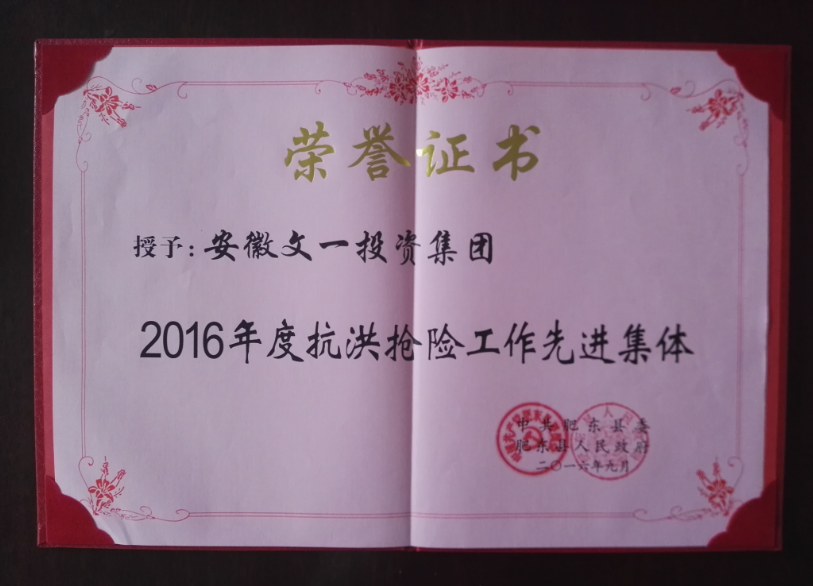 荣誉证书
授予：安徽文一投资集团
2016年度抗洪抢险工作先进集体
中共肥东县委
肥东县人民政府
二〇一六年九月